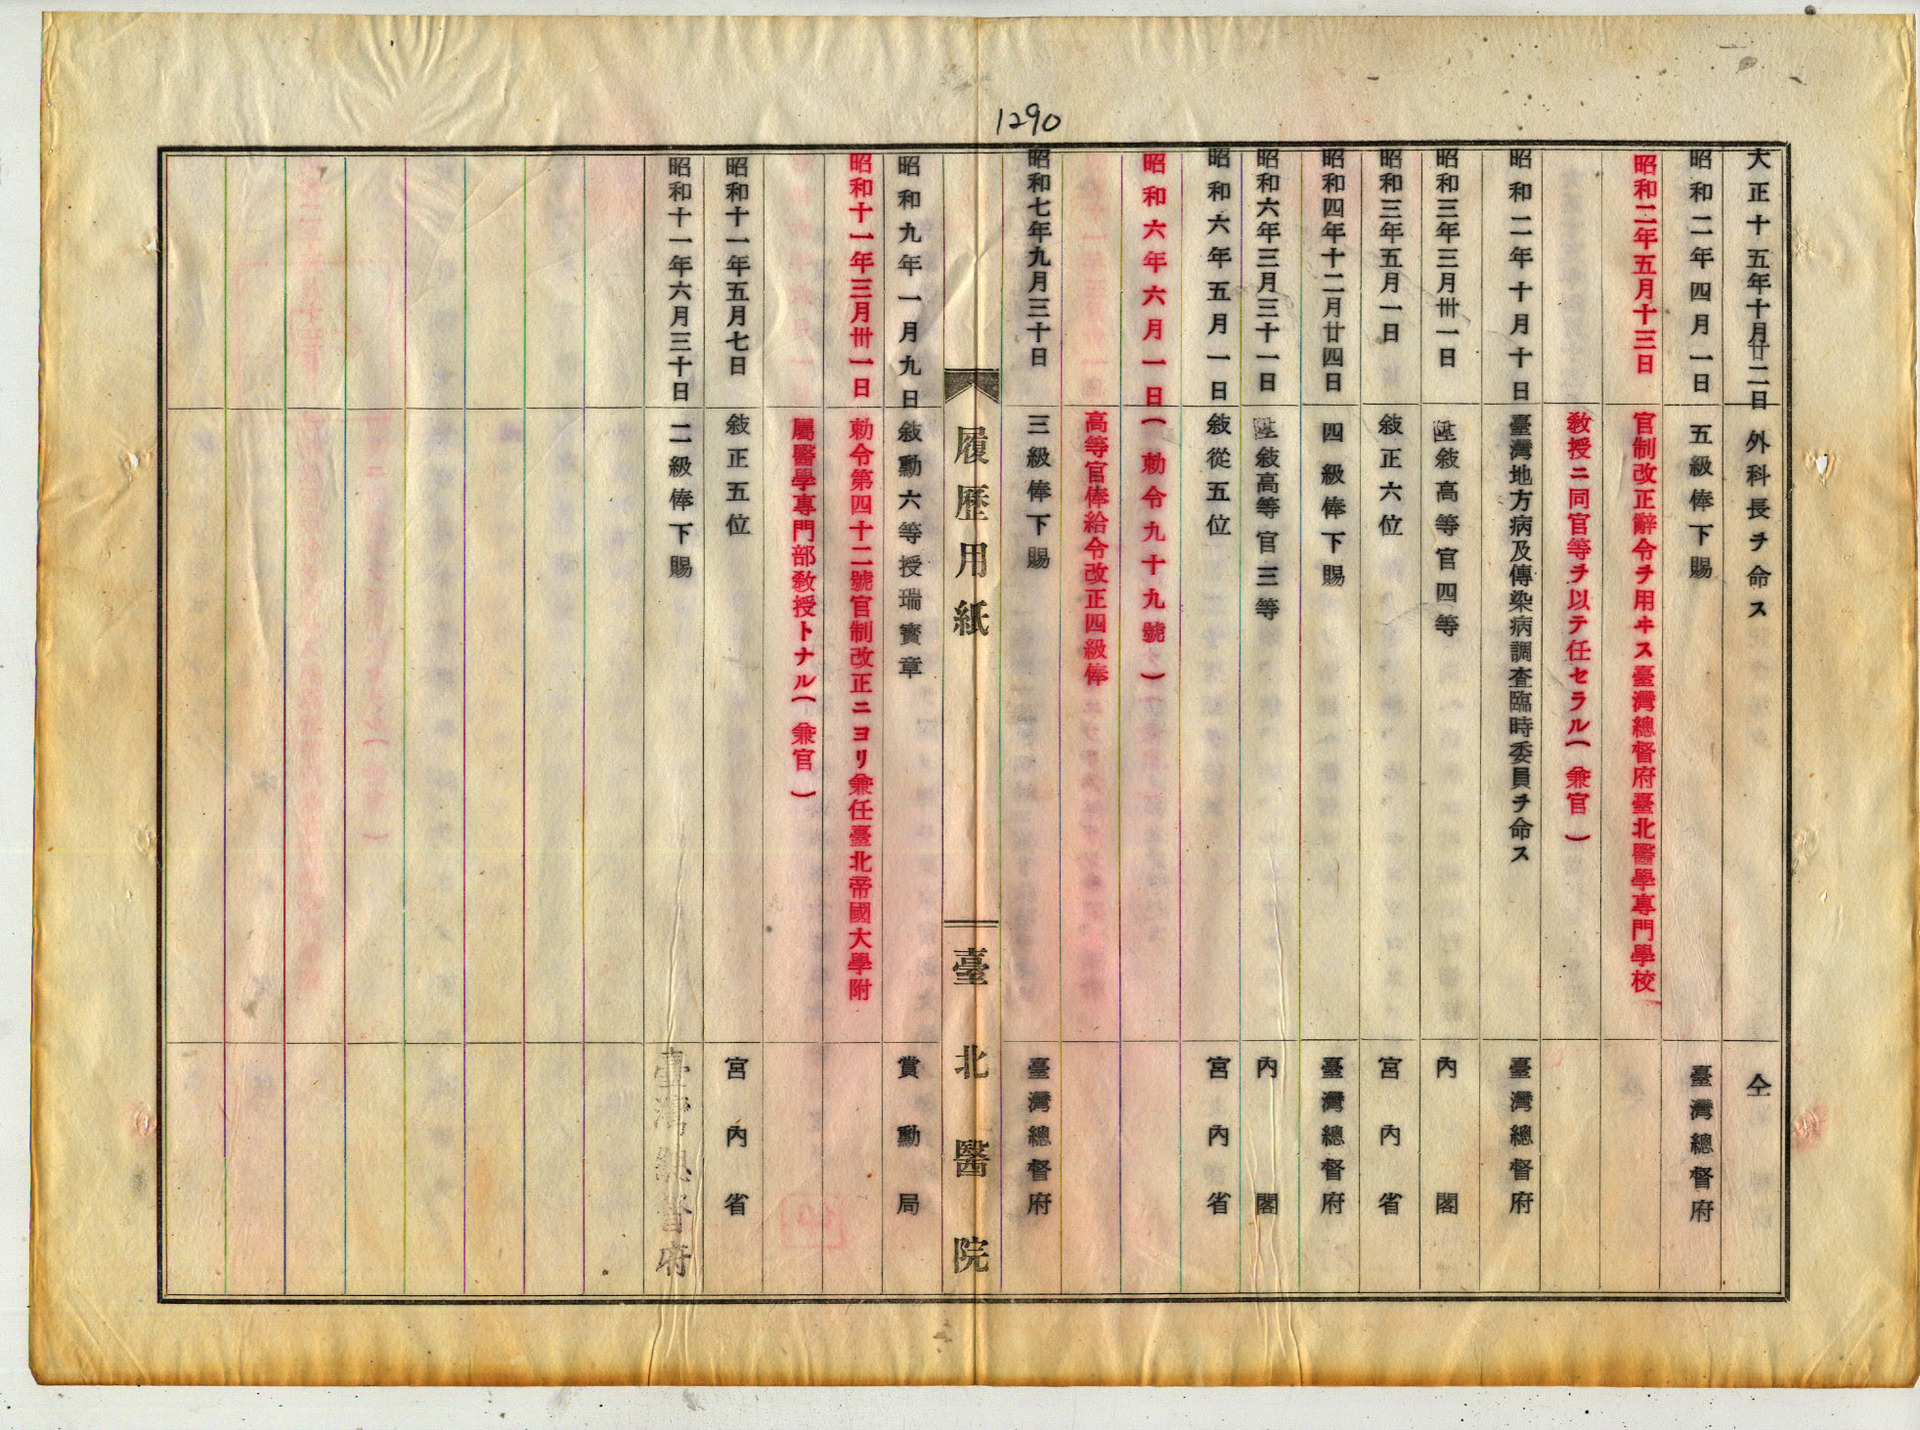 1290
大正十五年十月廿二日 外科長ヲ命ス 仝
昭和二年四月一日 五級俸下賜 臺灣總督府
昭和二年五月十三日 官制改正辭令ヲ用ヰス臺灣總督府臺北醫學專門學校
敎授ニ同官等ヲ以テ任セラル(兼官)
昭和二年十月十日 臺灣地方病及傳染病調査臨時委員ヲ命ス 臺灣總督府
昭和三年三月卅一日 陞敍高等官四等 內閣
昭和三年五月一日 敍正六位 宮內省
昭和四年十二月廿四日 四級俸下賜 臺灣總督府
昭和六年三月三十一日 陞敍高等官三等 內閣
昭和六年五月一日 敍從五位 宮內省
昭和六年六月一日 (勅令九十九號)
高等官俸給令改正四級俸
昭和七年九月三十日 三級俸下賜 臺灣總督府
履歷用紙 臺北醫院
昭和九年一月九日 敍勳六等授瑞寶章 賞勳局
昭和十一年三月卅一日 勅令第四十二號官制改正ニヨリ兼任臺北帝國大學附
屬醫學專門部敎授トナル(兼官)
昭和十一年五月七日 敍正五位 宮內省
昭和十一年六月三十日 二級俸下賜 臺灣總督府